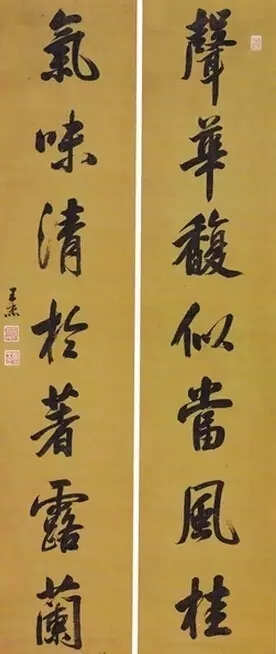 聲華馥似當風桂
氣味清於著露蘭
王杰